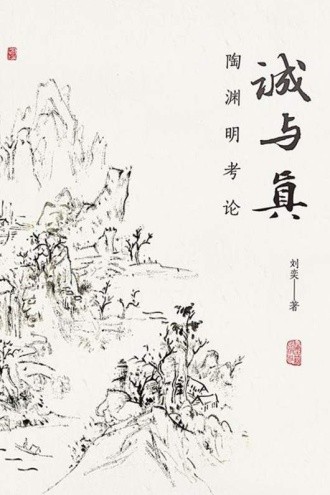 誠与真
陶渊明考论
刘奕 著